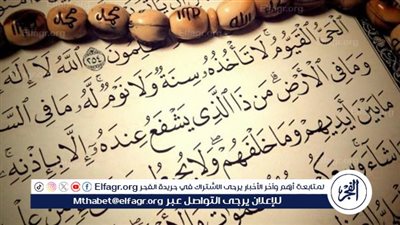 محمد الله محمد
Elfagr.org
ٱللَّهُ لَا إِلَٰهَ ٢٥٤
لْحَىُّ ٱلْقَيُّومُ لَا تَأْخُذُهُ سِنَةٌ وَلَا نَوْمٌ لَّهُ مَا فِى ٱلسَّ
وَمَا فِى ٱلْأَرْضِ مَن ذَا ٱلَّذِى يَشْفَعُ عِندَهُ إِلَّا بِإِذْنِهِ
مَا بَيْنَ أَيْدِيهِمْ وَمَا خَلْفَهُمْ وَلَا
لمتابعة أهم وآخر الأخبار يرجى الاشتراك في جريدة الفجر Elfagr.org
للإعلان يرجى التواصل عبر Mthabet@elfagr.org
الفجر